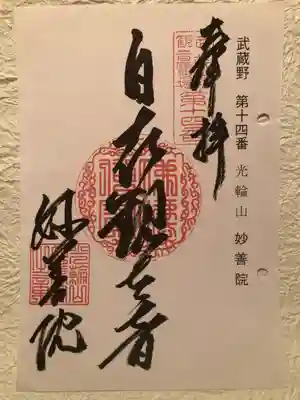 武蔵野 第十四番 光輪山 妙善院
奉拝
自在観世音
妙善院